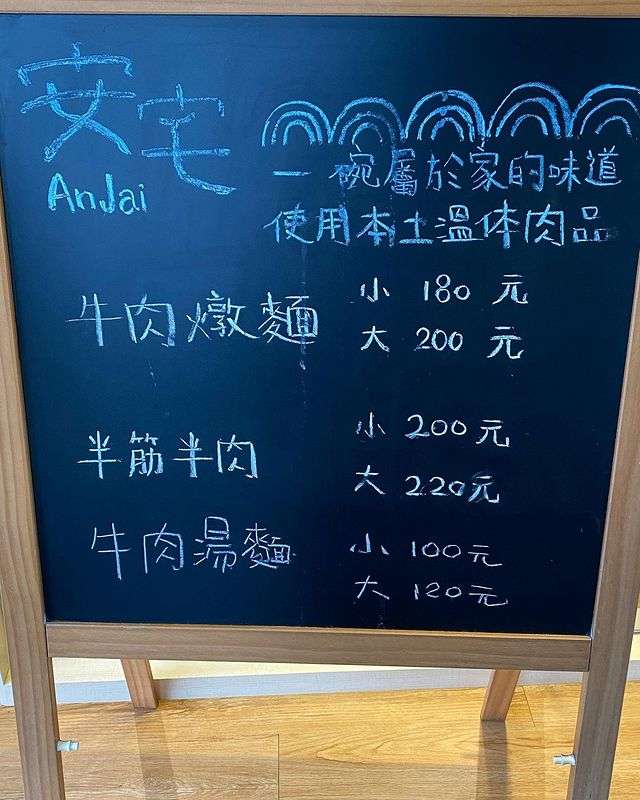 安宅
AnJai
一碗屬於家的味道
使用本土溫体肉品
牛肉燉麵 小 180 元
大 200 元
半筋半肉 小 200 元
大 220 元
牛肉湯麵 小 100 元
大 120 元